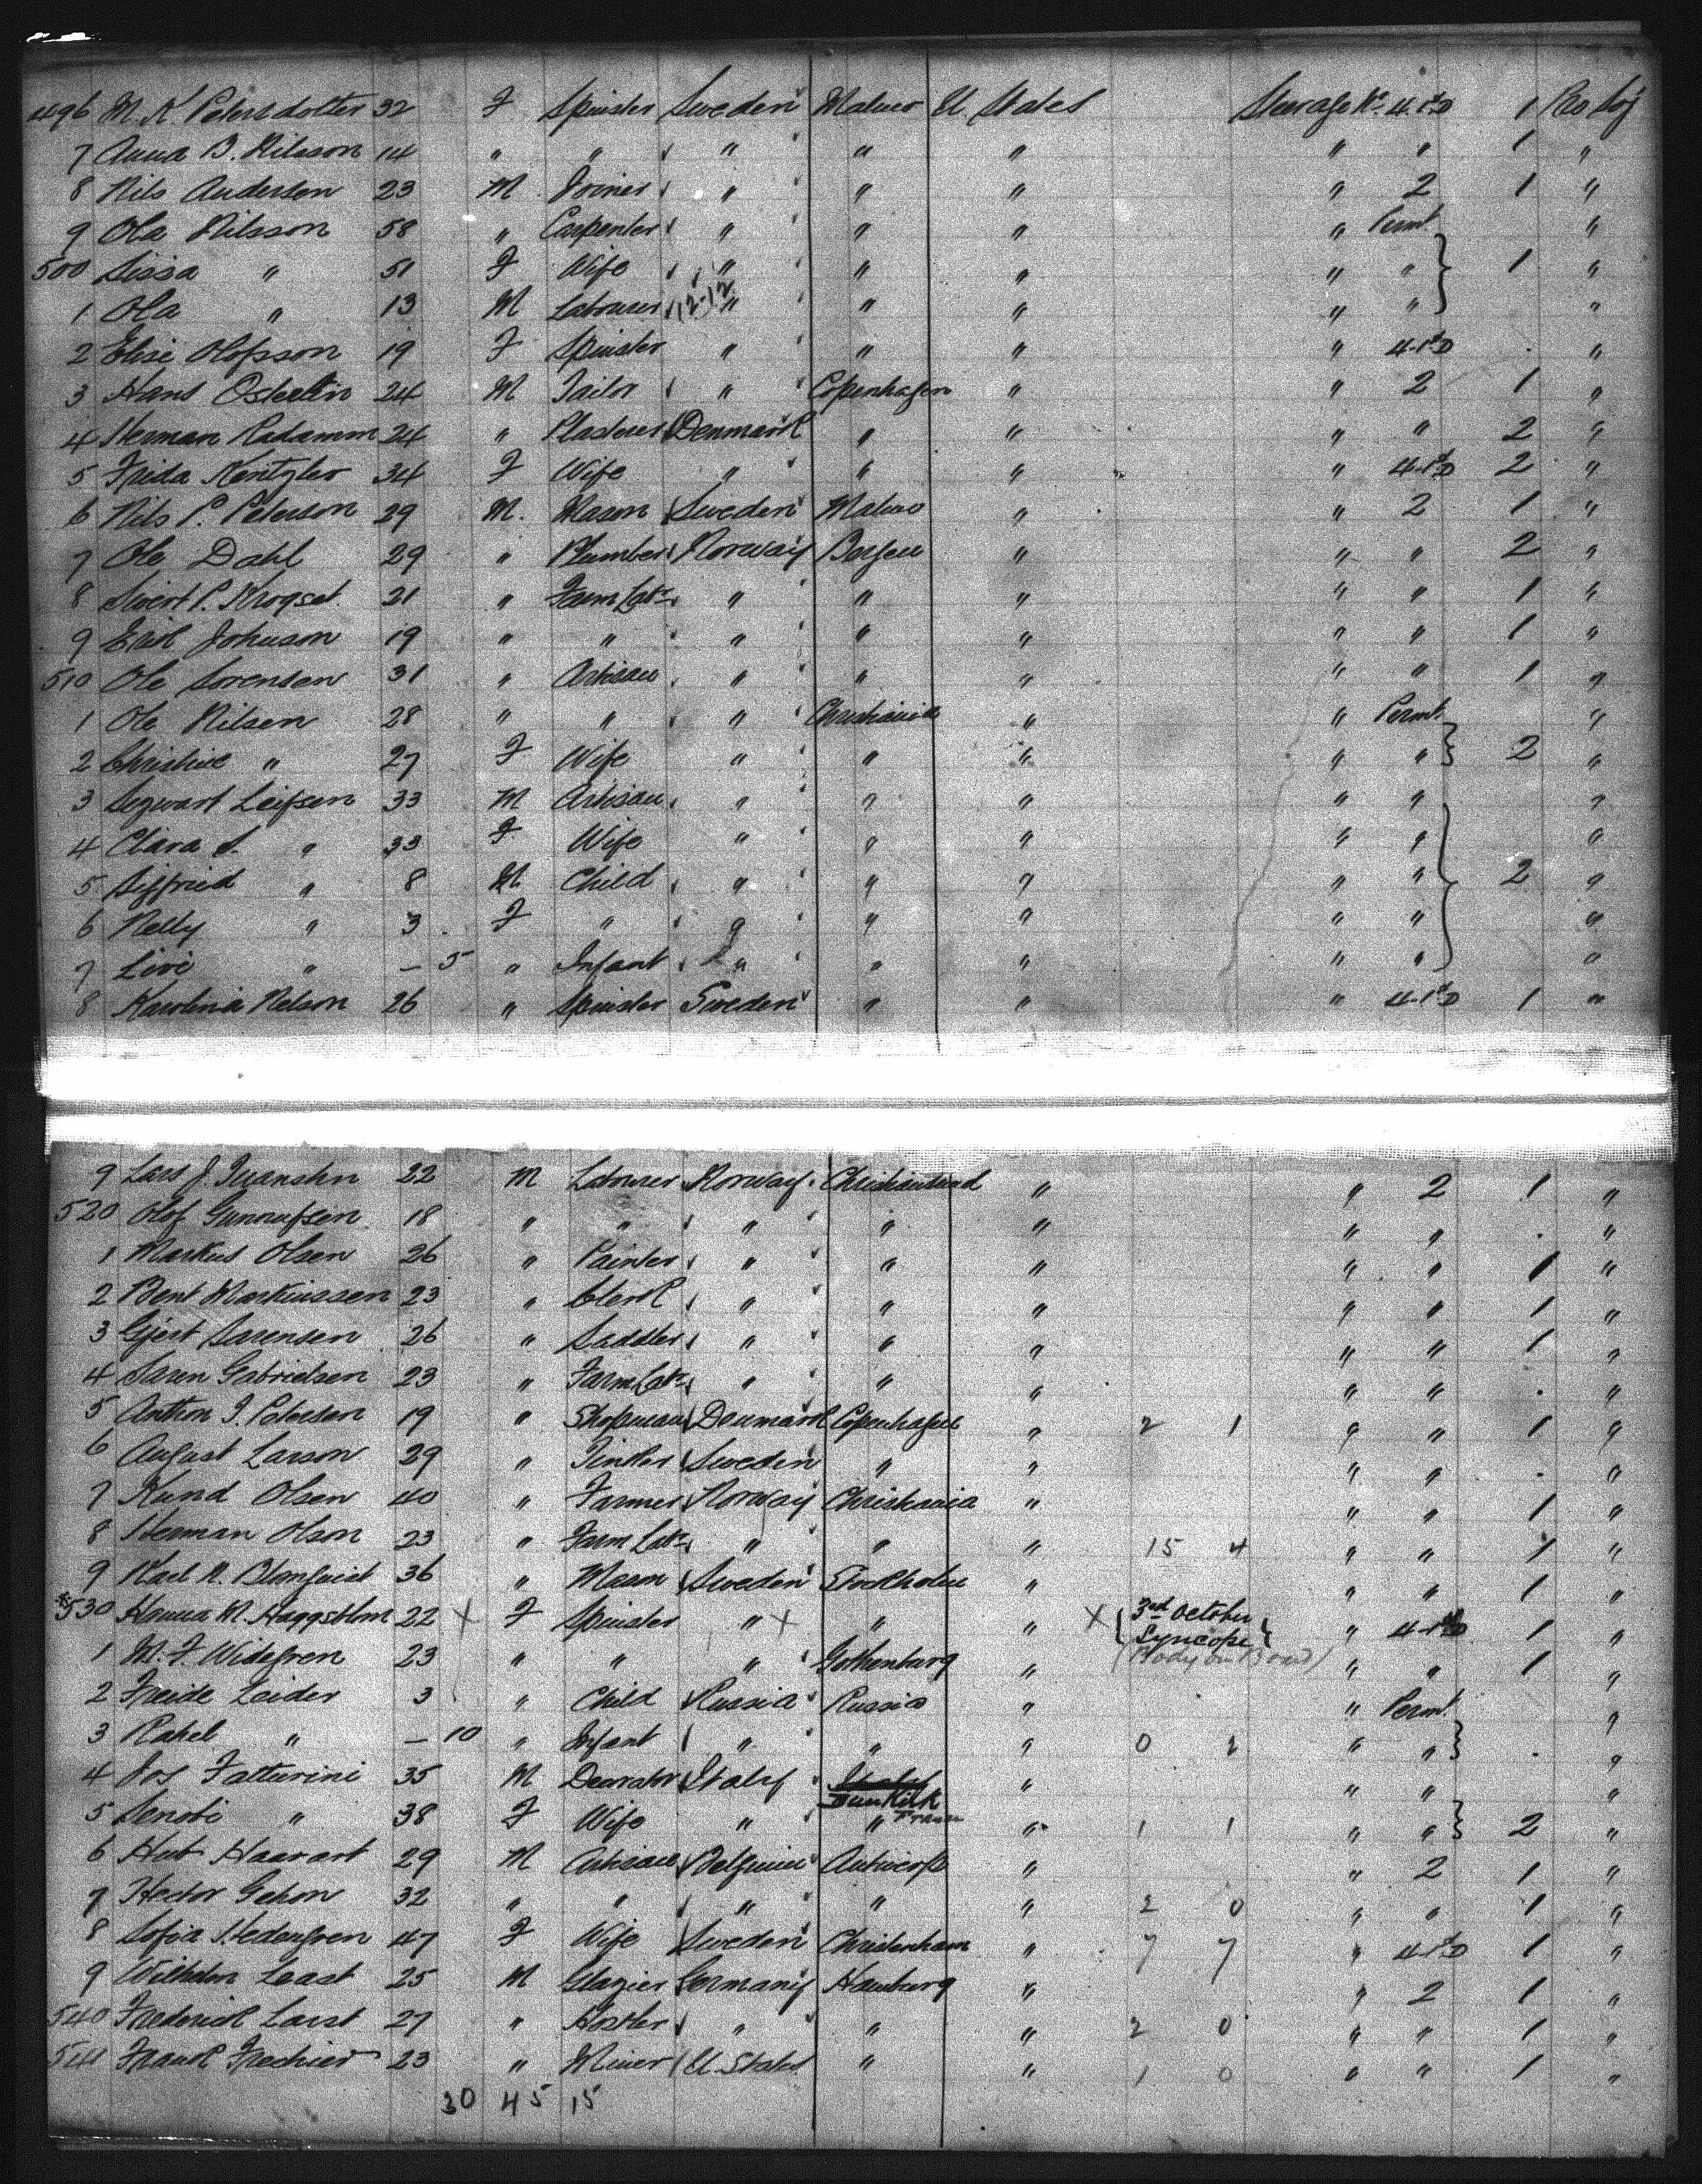 496 M. K. Petersdotter 32 F Spinster Sweden Malmo U. States Steerage No. 4.1st D 1 Pro Soj
7 Anna B. Nilsson 14 " " " " " " " 1 "
8 Nils Anderson 23 M Joiner " " " " 2 1 "
9 Ola Nilsson 58 " Carpenter " " " " Permt. "
500 Sissa " 51 F Wife " " " " " 1 "
1 Ola " 13 M Labourer (2-12 " " " " " "
2 Elise Olofsson 19 F Spinster " " " " 4-1st D . "
3 Hans Osterlin 24 M Tailor " Copenhagen " " 2 1 "
4 Herman Radamm 24 " Plasterer Denmark " " " " 2 "
5 Frida Kentzler 34 F Wife " " " " 4-1st D 2 "
6 Nils P. Peterson 29 M. Mason Sweden Malmo " " 2 1 "
7 Ole Dahl 29 " Plumber Norway Bergen " " " 2 "
8 Sivert P. Krogset 21 " Farm Labr " " " " " 1 "
9 Erik Johnson 19 " " " " " " " 1 "
510 Ole Sorensen 31 " Artisan " " " " " 1 "
1 Ole Nilsen 28 " " " Christiania " " Permt. "
2 Christine " 27 F Wife " " " " " 2 "
3 Segwart Leifsen 33 M Artisan " " " " " "
4 Clara S. " 33 F Wife " " " " " "
5 Sigfried " 8 M Child " " " " " 2 "
6 Nelly " 3 F " " " " " " "
7 Livi " — 5 " Infant " " " " " "
8 Karolina Nelson 26 " Spinster Sweden " " " 4-1st D 1 "
9 Lars J. 22 M Labourer Norway Christiansand " " 2 1 "
520 Olof Gunnufsen 18 " " " " " " " . "
1 Markus Olsen 26 " Painter " " " " " 1 "
2 Bent Markussen 23 " Clerk " " " " " 1 "
3 Gjert Sarensen 26 " Saddler " " " " " 1 "
4 Saren Gabrielsen 23 " Farm Labr " " " " " . "
5 Anthon I. Petersen 19 " Shopman Denmark Copenhagen " 2 1 " " 1 "
6 August Larson 29 " Tinker Sweden " " " " . "
7 Knud Olsen 40 " Farmer Norway Christiania " " " 1 "
8 Herman Olson 23 " Farm Labr " " " 15 4 " " 1 "
9 Karl R. Blomquist 36 " Mason Sweden Stockholm " " " 1 "
530 Hanna M. Haggsblom 22 X F Spinster " X " " X { 3rd October } " 4-1st D 1 "
Syncope
1 M. F. Widegren 23 " " " Gothenburg " (Body on Board) " " 1 "
2 Freide Leider 3 " Child Russia Russia " " Permt. "
3 Rahel " — 10 " Infant " " " 0 2 " " . "
4 Jos Fatturini 35 M Decorator Italy Italy " " " "
Dunkirk
5 Senobi " 38 F Wife " " France " 1 1 " " 2 "
6 Hub Haarart 29 M Artisan Belgium Antwerp " " 2 1 "
7 Hector Gehon 32 " " " " " 2 0 " " 1 "
8 Sofia Hedengren 47 F Wife Sweden Christenham " 7 7 " 4-1st D 1 "
9 Wilhelm Least 25 M Glazier Germany Hamburg " " 2 1 "
540 Frederick Larst 27 " Hostler " " " 2 0 " " 1 "
541 Frank Frechier 23 " Miner U. States " " 1 0 " " 1 "
30 45 15